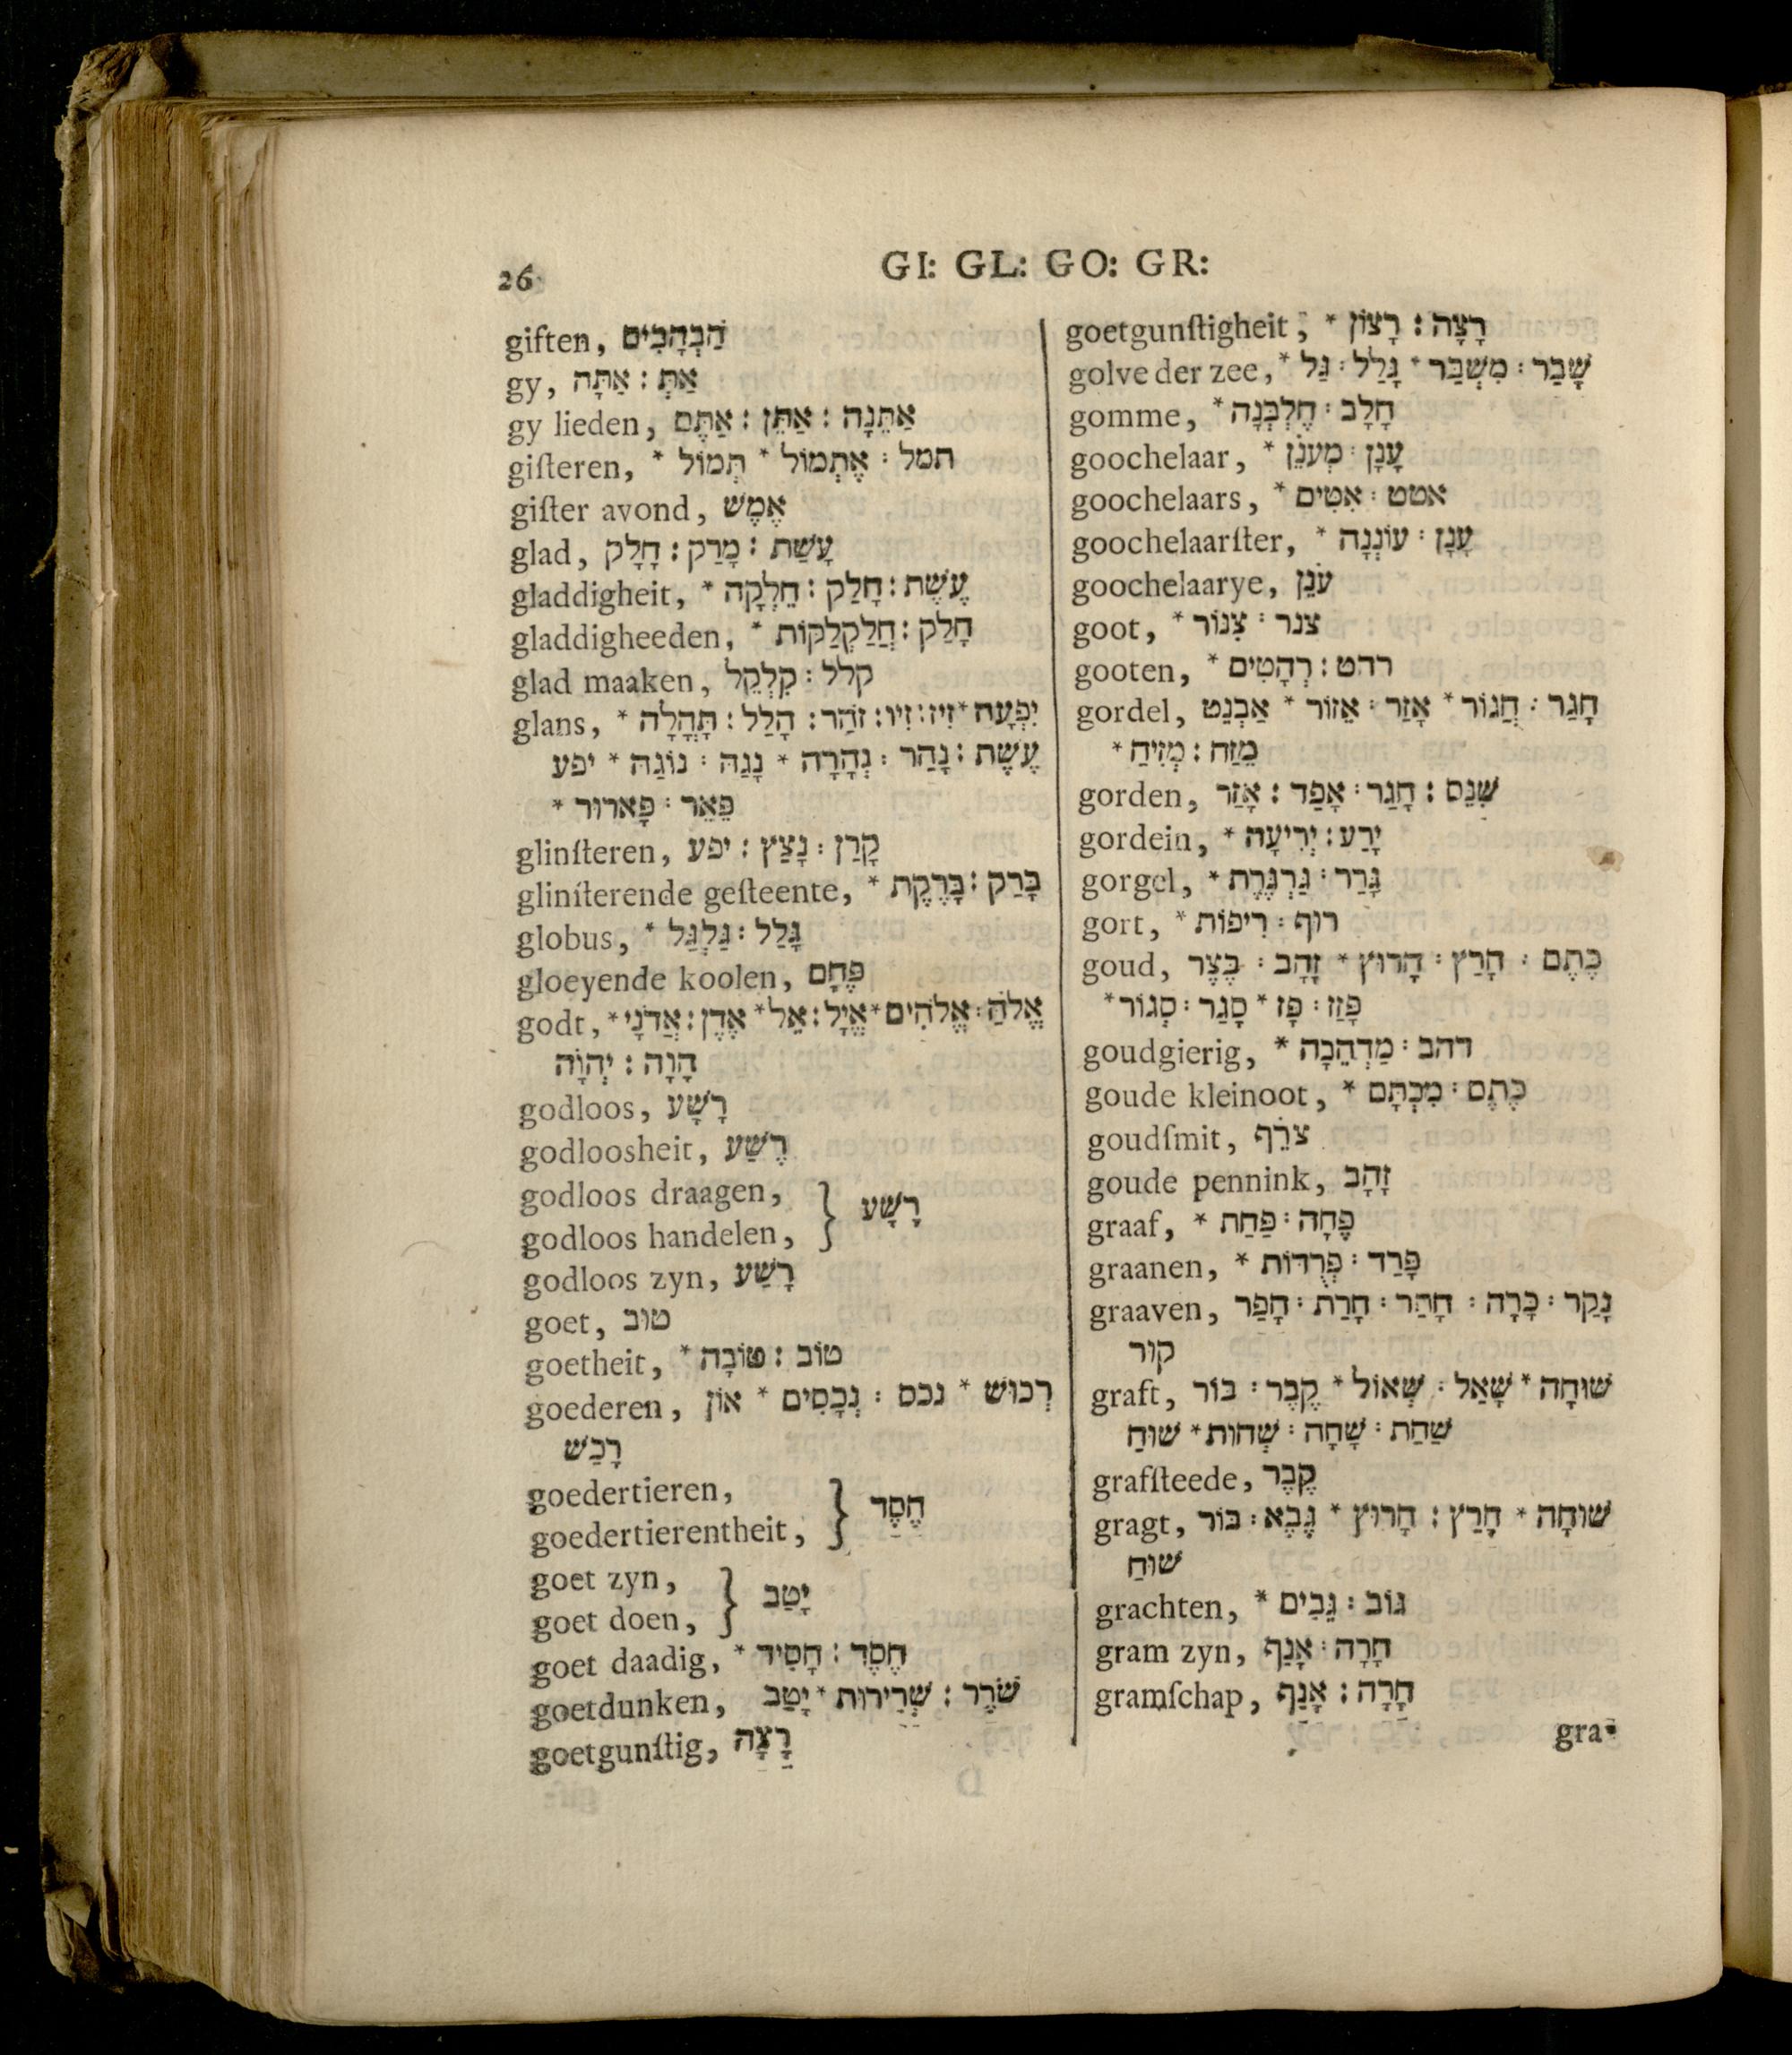 26
GI: GL: GO: GR:
giften, הַבְהָבִים
gy, אַתְּ : אַתָּה
gy lieden, אַתֵּנָה : אַתֵּן : אַתֶּם
giſteren, * תמל : אֶתְמוֹל * תְּמוֹל
giſter avond, אֶמֶשׁ
glad, עָשַׁת : מָרַק : חָלָק
gladdigheit, * עֶשֶׁת : חָלַק : חֵלְקָה
gladdigheeden, * חָלַק : חֲלַקְלַקּוֹת
glad maaken, קלל : קִלְקֵל
glans, * יִפְעָה * זִיז : זִיו : זֹהַר : הָלַל : תָּהֳלָה
עֶשֶׁת : נָהַר : נְהָרָה * נָגַהּ : נוֹגַהּ * יפע
פֵּאֵר : פָּארוּר *
glinſteren, קָרַן : נָצַץ : יפע
glinſterende geſteente, * בָּרַק : בָּרֶקֶת
globus, * גָּלַל : גַּלְגַּל
gloeyende koolen, פֶּחָם
godt, * אֱלֹהַּ : אֱלֹהִים * אֱיָל : אֵל * אֶדֶן : אֲדֹנָי
הָוָה : יְהוָֹה
godloos, רָשָׁע
godloosheit, רֶשַׁע
godloos draagen,
godloos handelen, } רָשָׁע
godloos zyn, רָשַׁע
goet, טוּב
goetheit, * טוֹב : טוֹבָה
goederen, רְכוּשׁ * נכס : נְכָסִים * אוֹן
רָכַשׁ
goedertieren,
goedertierentheit, } חֶסֶד
goet zyn,
goet doen, } יָטַב
goet daadig, * חֶסֶד : חָסִיד
goetdunken, שֹׁרֶר : שְׁרִירוּת * יָטַב
goetgunſtig, רָצָה
goetgunſtigheit, * רָצָה : רָצוֹן
golve der zee, * שָׁבַר : מִשְׁבַּר * גָּלַל : גַּל
gomme, * חָלָב : חֶלְבְּנָה
goochelaar, * עָנָן : מְעֹנֵן
goochelaars, * אטט : אִטִּים
goochelaarſter, * עָנָן : עוֹנְנָה
goochelaarye, עֹנֵן
goot, * צנר : צִנּוֹר
gooten, * רהט : רְהָטִים
gordel, חָגַר : חֲגוֹר * אָזַר : אֵזוֹר * אַבְנֵט
מֵזַח : מְזִיחַ *
gorden, שִׁנֵּס : חָגַר : אָפַד : אָזַר
gordein, * יָרַע : יְרִיעָה
gorgel, * גָּרַר : גַּרְגֶּרֶת
gort, * רוּף : רִיפוֹת
goud, כֶּתֶם : חָרַץ : חָרוּץ * זָהָב : בֶּצֶר
פָּזַז : פָּז * סָגַר : סְגוֹר *
goudgierig, * דהב : מַדְהֵבָה
goude kleinoot, * כֶּתֶם : מִכְתָּם
goudſmit, צֹרֵף
goude pennink, זָהָב
graaf, * פֶּחָה : פַּחַת
graanen, * פָּרַד : פְּרֻדוֹת
graaven, נָקַר : כָּרָה : חָהַר : חָרַת : חָפַר
קוּר
graft, שׁוּחָה * שָׁאַל : שְׁאוֹל * קֶבֶר : בּוֹר
שַׁחַת : שָׁחָה : שְׁחוּת * שׁוּחַ
grafſteede, קֶבֶר
gragt, שׁוּחָה * חָרַץ : חָרוּץ * גֶּבֶא : בּוֹר
שׁוּחַ
grachten, * גּוֹב : גֵּבִים
gram zyn, חָרָה : אָנַף
gramſchap, חָרָה : אָנַף
gra-